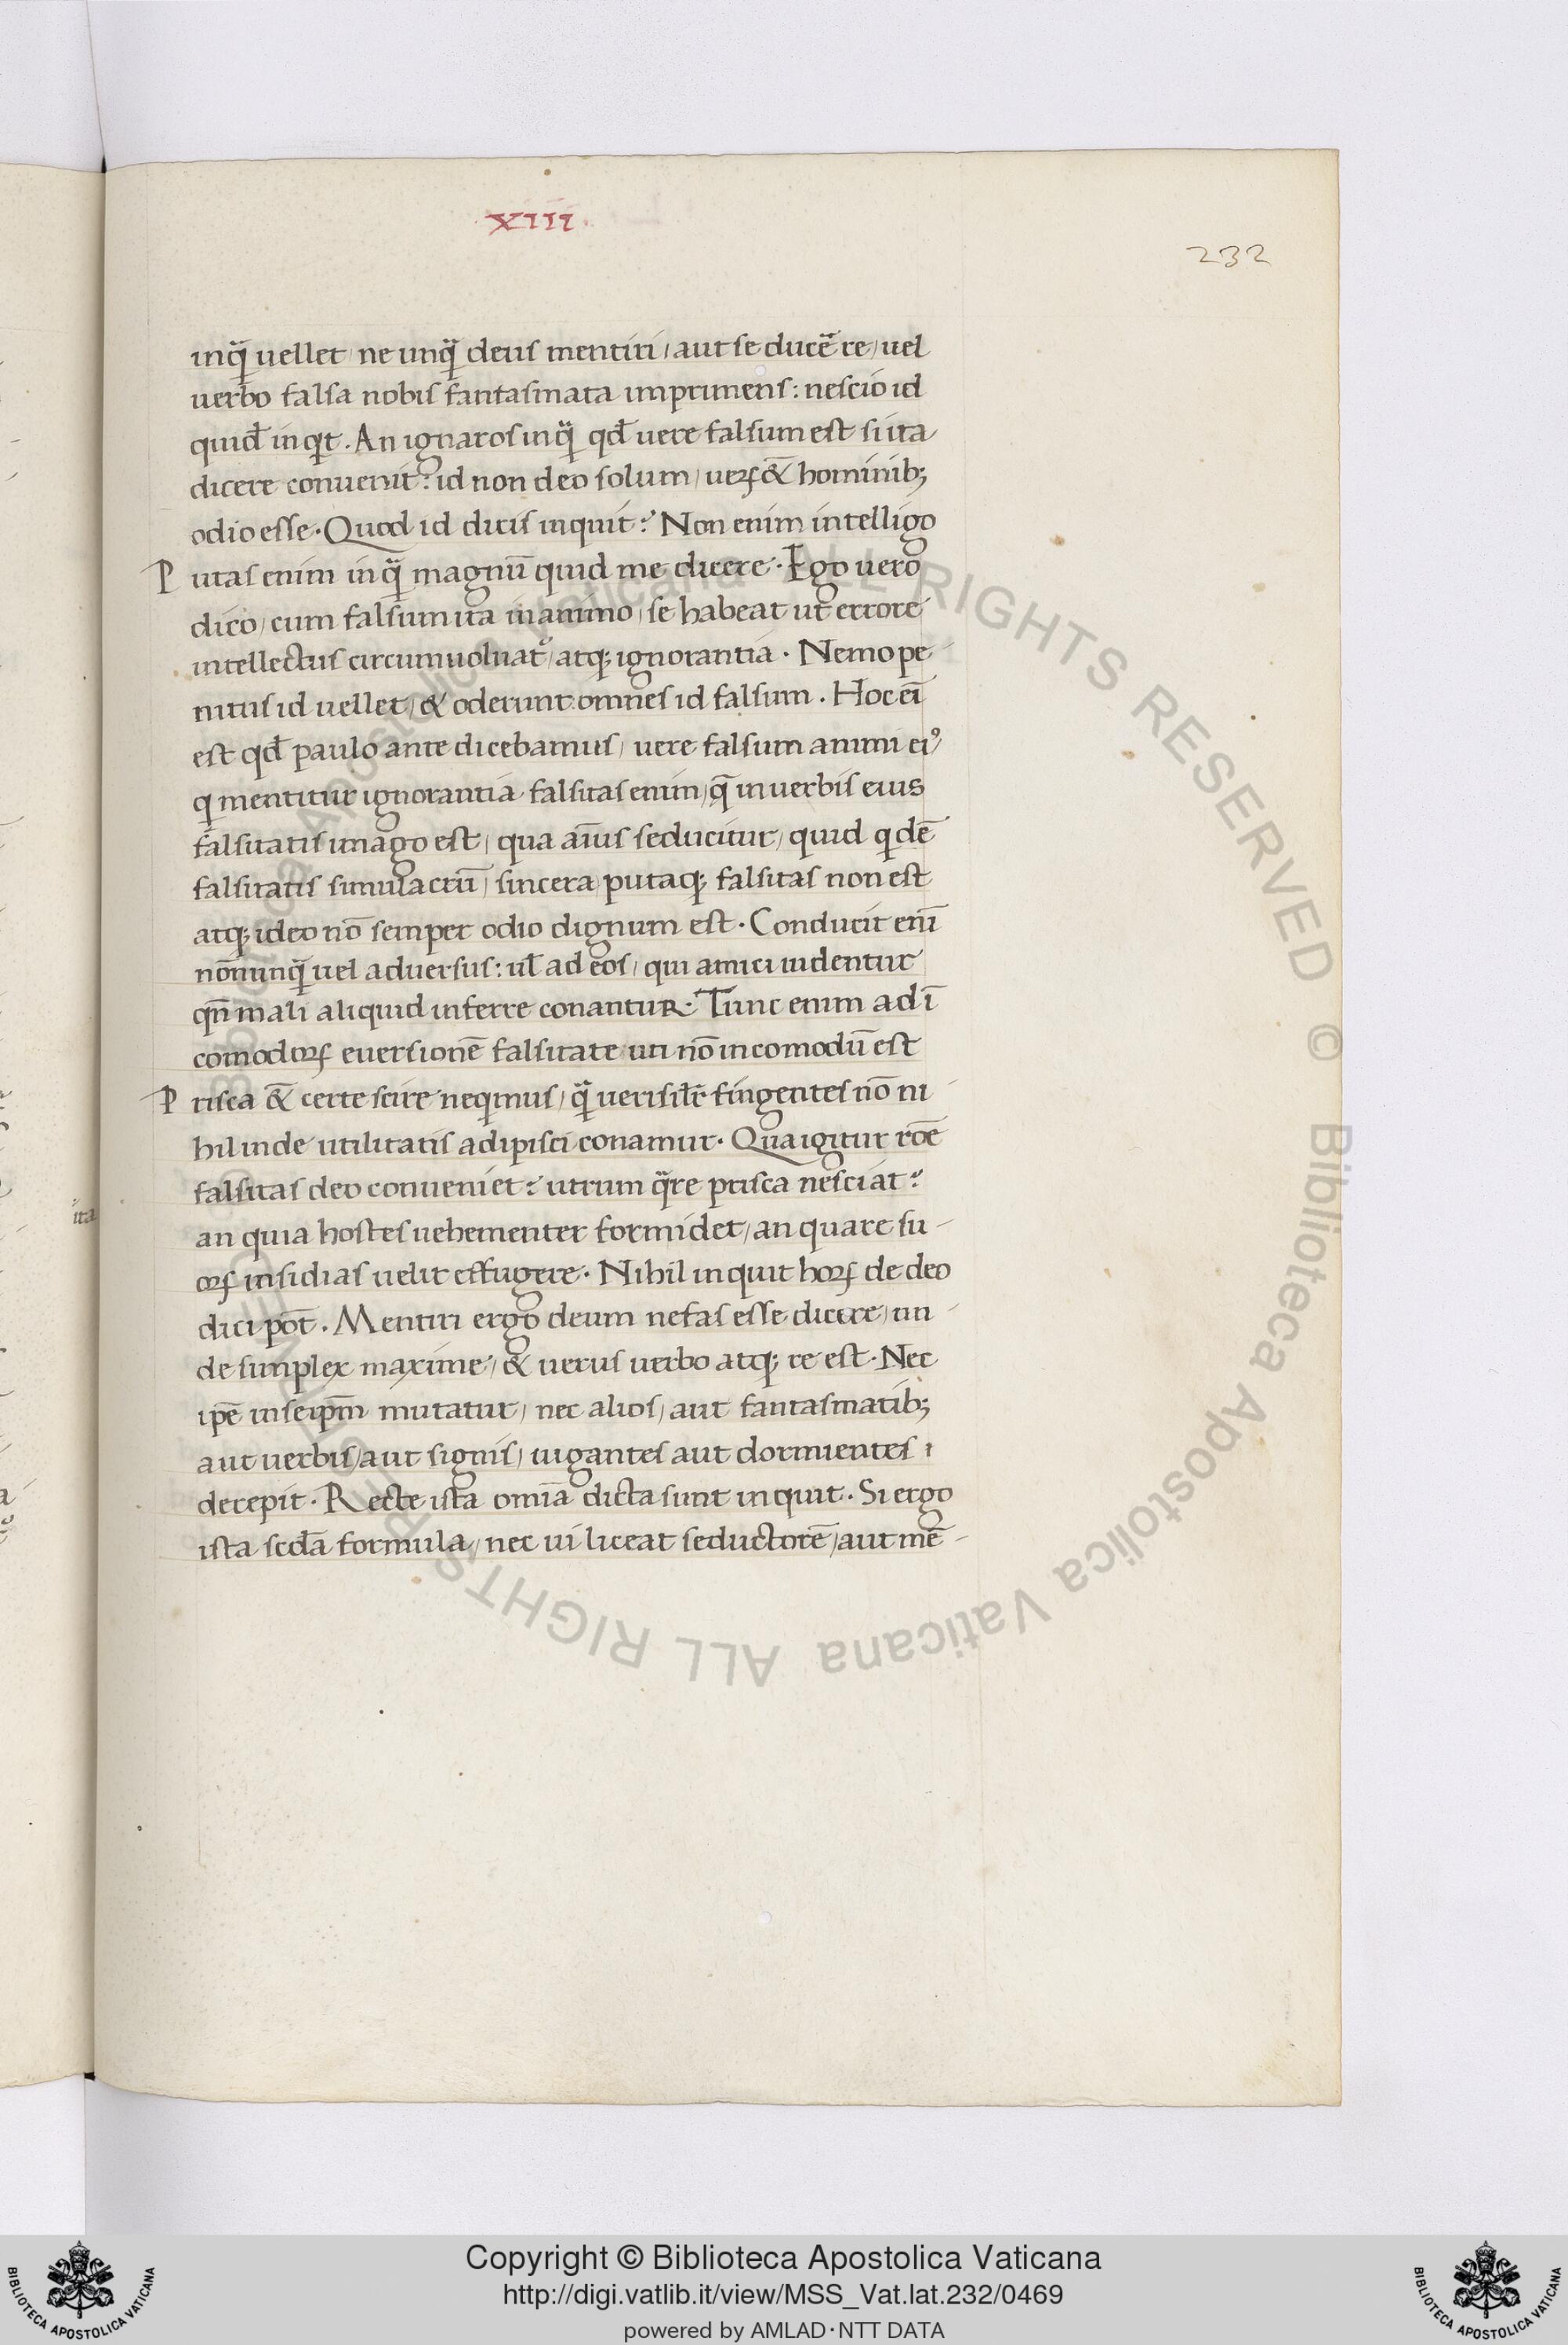 xiii.
232
inq̃ uellet / ne unq̃ deus mentiri / aut seducẽre / uel
uerbo falsa nobis fantasmata imprimens: nescio id
quid̃ inqit. An ignaros inq̃ qd̃ uere falsum est si ita
dicere conuenit? id non deo solum / ueꝝ & hominib;
odio esse. Quod id dicis inquit? Non enim intelligo
Putas enim inq̃ magnũ quid me dicere. Ego uero
dico / cum falsum ita in animo / se habeat ut errore
intellectus circumuoluat᷑ / atq; ignorantia. Nemo pe-
nitus id uellet / & oderunt omnes id falsum. Hoc eĩ
est qd̃ paulo ante dicebamus / uere falsum animi ei᷒
q mentitur ignorantia falsitas enim / q̃ in uerbis eius
falsitatis imago est / qua aĩus seducitur / quid qdẽ
falsitatis simulacrũ / sincera putaq; falsitas non est
atq; ideo nõ semper odio dignum est. Conducit enĩ
nõnunq̃ uel aduersus: ul̃ ad eos / qui amici uidentur
qñ mali aliquid inferre conantur. Tunc enim ad ĩ
comodoꝝ euersionẽ falsitate uti nõ incomodũ est
Prisca & certe scire neqimus / q̃ uerisilr̃ fingentes nõ ni-
hil inde utilitatis adipisci conamur. Qua igitur rõe
falsitas deo conueniet? utrum q̃re prisca nesciat?
an quia hostes uehementer formidet / an quare su-
oꝝ insidias uelit effugere. Nihil inquit hoꝝ de deo
dici põt. Mentiri ergo deum nefas esse dicere / un-
de simplex maxime / & uerus uerbo atq; re est. Nec
ipẽ in seipm̃ mutatur / nec alios / aut fantasmatib;
aut uerbis / aut signis / uigantes aut dormientes
decepit. Recte ista omĩa dicta sunt inquit. Si ergo
ista scd̃a formula / nec ui liceat seductorẽ / aut mẽ-
ita
© Biblioteca Apostolica Vaticana ALL RIGHTS RESERVED © Biblioteca Apostolica Vaticana ALL RIGHTS RESERVED
Copyright © Biblioteca Apostolica Vaticana
http://digi.vatlib.it/view/MSS_Vat.lat.232/0469
powered by AMLAD·NTT DATA
BIBLIOTECA APOSTOLICA VATICANA
BIBLIOTECA APOSTOLICA VATICANA